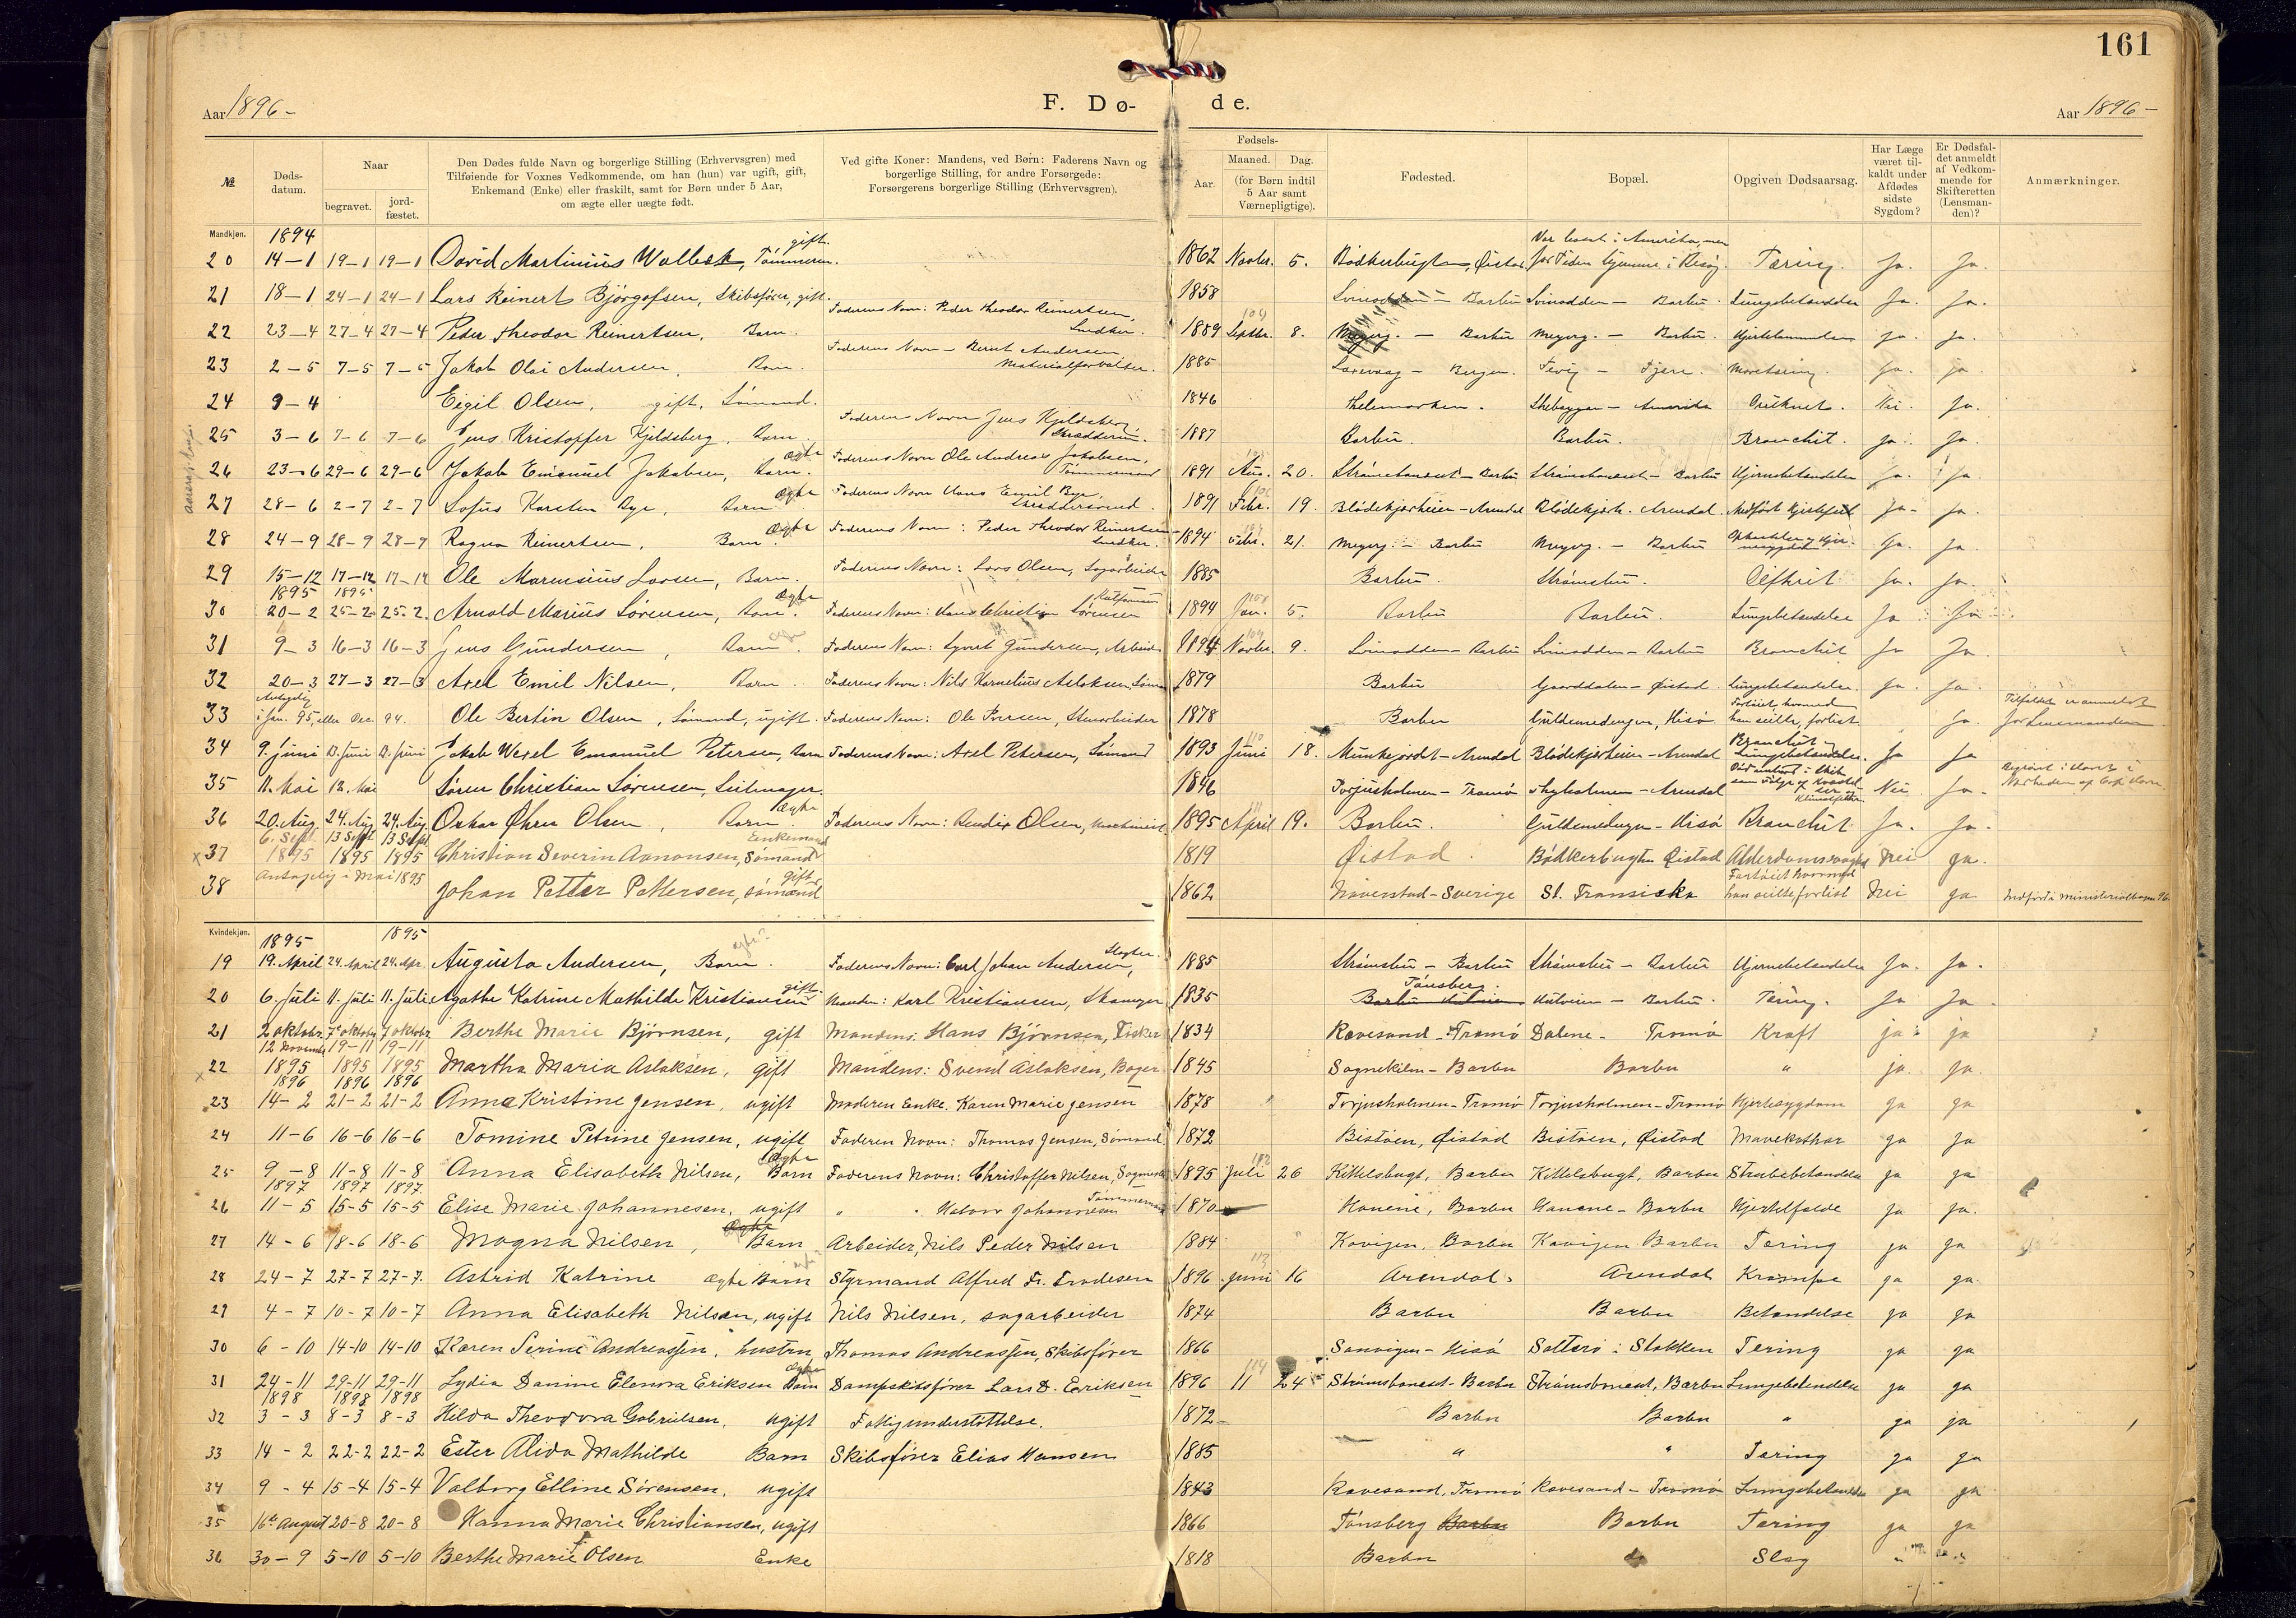 161
Aar 1896 –
F. Dø-
de.
Aar 1896 –
№
Døds-
datum.
Naar
begravet.
jord-
fæstet.
Den Dødes fulde Navn og borgerlige Stilling (Erhvervsgren) med
Tilføiende for Voxnes Vedkommende, om han (hun) var ugift, gift,
Enkemand (Enke) eller fraskilt, samt for Børn under 5 Aar,
om ægte eller uægte født.
Ved gifte Koner: Mandens, ved Børn: Faderens Navn og
borgerlige Stilling, for andre Forsørgede:
Forsørgerens borgerlige Stilling (Erhvervsgren).
Fødsels-
Aar.
Maaned.
Dag.
(for Børn indtil
5 Aar samt
Værnepligtige).
Fødested.
Bopæl.
Opgiven Dødsaarsag.
Har Læge
været til-
kaldt under
Afdødes
sidste
Sygdom?
Er Dødsfal-
det anmeldt
af Vedkom-
mende for
Skifteretten
(Lensman-
den)?
Anmærkninger.
Mandkjøn.
1894
20 14–1 19–1 19–1 David Martinius Tømmerm. gift. 1862 Novbr. 5. Øistad Tæring. Ja. Ja.
21 18–1 24–1 24–1 Lars Reinert Skibsfører, gift. 1858 Barbu Svinodden – Barbu. Lungebetændelse Ja. Ja.
22 23–4 27–4 27–4 Peder Theodor Reinertsen, Barn. Faderens Navn: Peder Theodor Reinertsen, Snedker. 1889 Septbr. 8. – Barbu – Barbu. ja. ja.
23 2–5 7–5 7–5 Jakob Olai Andersen, Barn. Faderens Navn – Bernt Andersen Materialforvalter. 1885 – Bergen. Fevig – Fjære. ja. ja.
24 9–4 Eigil Olsen, gift. Sømand. 1846 Thelemarken. – Amerika Druknet. Nei. Ja.
25 3–6 7–6 7–6 Jens Kristoffer Kjeldsberg, Barn. Faderens Navn Jens Kjeldsberg 1887 Barbu. Barbu. Bronchit. ja. ja.
26 23–6 29–6 29–6 Jakob Emanuel Jakobsen, Barn. Ægte Faderens Navn Ole Andreas Jakobsen, Tømmermand 1891 Aug. 20. Strømsbuneset – Barbu Strømsbuneset – Barbu Hjernebetændelse Ja. Ja.
27 28–6 2–7 2–7 Sofus Karsten Bye, Barn Ægte Faderens Navn Hans Emil Bye, 1891 Febr. 19. Blødekjærheien – Arendal Blødekjær. Arendal. Medfødt Hjertefeil Ja. Ja.
28 24–9 28–9 28–9 Ragna Reinertsen, Barn. Ægte Faderens Navn: Peder Theodor Reinertsen Snedker. 1894 21. – Barbu – Barbu Ja. Ja.
29 15–12 17–12 17–12 Ole Larsen, Barn. Faderens Navn: Lars Olsen, Sagarbeider 1885 Barbu. Strømsbu. Difterit Ja. Ja.
1895 1895
30 20–2 25–2 25–2. Arnold Marius Sørensen, Barn. Ægte Faderens Navn: Hans Christian Sørensen 1894 Jan. 5. Barbu Barbu. Lungebetændelse Ja Ja
31 9–3 16–3 16–3 Jens Gundersen, Barn. Faderens Navn: Gundersen, Arbeider 1894 Novbr. 9. Svinodden – Barbu Svinodden – Barbu Bronchit Ja Ja.
32 20–3 27–3 27–3 Axel Emil Nilsen, Barn. Faderens Navn: Nils Kornelius Aslaksen, 1879 Barbu – Øistad. Lungebetændelse. Ja. Ja.
33 Antagelig i Jan. 95, eller Dec. 94. Ole Bertin Olsen, Sømand, ugift. Faderens Navn: Ole 1878 Barbu Guldsmedengen, Hisø Fartøiet, hvormed han seilte, forlist. Ja. Tilfældet er anmeldt for Lensmanden
34 9. Juni 13. Juni 13. Juni Jakob Wexel Emanuel Petersen, Barn Faderens Navn: Axel Petersen, Sømand 1893 Juni 18. Munkejordet – Arendal Blødekjærheien – Arendal Bronchit – Lungebetændelse. Ja Ja
35 11. Mai 12. Mai Søren Christian Sørensen, Seilmager. 1846 Torjusholmen – Tromø – Arendal Nei Ja.
36 20. Aug. 24. Aug. 24. Aug. Oskar Øhrn Olsen, Barn. Ægte Faderens Navn: Bendix Olsen, Maskinist 1895 April 19. Barbu. Guldsmedengen – Hisø Bronchit Ja. Ja.
x 37 6. Sept. 1895 13 Sept 1895 13 Sept. 1895 Christian Severin Aanonsen, Sømand Enkemand 1819 Øistad. Bødkerbugten Øistad Alderdomssvaghed Nei ja.
38 Antagelig i Mai 1895 Johan Petter Pettersen, sømand gift 1862 Naverstad – Sverige St. Fransiska Fartøiet hvormed han seilte, forlist Nei ja Indført i ministerialbogen 96.
Kvindekjøn.
1895 1895
19 19. April 24. April 24. Apr. Augusta Andersen, Barn. Faderens Navn: Carl Johan Andersen, Slagter. 1885 Strømsbu – Barbu Strømsbu – Barbu Hjernebetændelse Ja. Ja.
20 6. Juli 11. Juli 11. Juli Agathe Katrine Mathilde Kristiansen gift Manden: Karl Kristiansen, Skomager 1835 Tønsberg. – Barbu. Tæring. Ja Ja.
21 2 oktobr. 7 oktobr 7 oktobr Berthe Marie Bjørnsen, gift Mandens: Hans Bjørnsen, Fisker 1834 Ravesand – Tromø Dalene – Tromø Kraft ja ja
x 22 12 November 1895 19–11 1895 19–11 1895 Martha Maria Aslaksen, gift Mandens: Svend Aslaksen, Bager 1845 Sognekilen – Barbu Barbu " ja. ja.
1896 1896 1896
23 14–2 21–2 21–2 Anna Kristine Jensen, ugift Moderen Enke. Karen Marie Jensen 1878 Torjusholmen – Tromø Torjusholmen – Tromø Hjertesygdom ja ja
24 11–6 16–6 16–6 Tomine Petrine Jensen, ugift Faderen Navn: Thomas Jensen, Sømand 1872 Bistøen, Øistad Bistøen, Øistad Mavekathar ja ja
25 9–8 11–8 11–8 Anna Elisabeth Nilsen, Barn Ægte Faderens Navn: Christoffer Nilsen, 1895 juli 26 Kittelsbugt, Barbu Kittelsbugt, Barbu Strubebetændelse ja ja
1897 1897 1897
26 11–5 15–5 15–5 Elise Marie Johannesen, ugift " " Halvor Johannesen Tømmermand 1870 Havene, Barbu Havene – Barbu Hjertefeil ja ja.
27 14–6 18–6 18–6 Magna Nilsen, Barn Arbeider, Nils Peder Nilsen 1884 Kavigen, Barbu Kavigen Barbu Tæring ja ja
28 24–7 27–7 27–7. Astrid Katrine ægte Barn Styrmand Alfred Fr. 1896 Juni 16 Arendal. Arendal Krampe ja ja.
29 4–7 10–7 10–7 Anna Elisabeth Nilsen, ugift Nils Nilsen, sagarbeider 1874 Barbu Barbu Betændelse ja ja
30 6–10 14–10 14–10 Karen Serine Andreassen, hustru Thomas Andreassen, Skibsfører 1866 Sanvigen – Hisø Salterø i Stokken Tæring ja ja
31 24–11 29–11 29–11 Lydia Danine Elenora Eriksen Barn Ægte Dampskibsfører Lars D. Eriksen 1896 11 24 Strømsbuneset – Barbu Strømsbuneset, Barbu Lungebetændelse ja ja
1898 1898 1898
32 3–3 8–3 8–3 Hilda Theodora Gabrielsen, ugift Fattigunderstøttelse. 1872 Barbu Barbu " ja ja
33 14–2 22–2 22–2 Ester Alida Mathilde Barn Skibsfører Elias Hansen 1885 " " Tæring ja ja
34 9–4 15–4 15–4 Valborg Elline Sørensen, ugift 1843 Ravesand, Tromø Ravesand – Tromø Lungebetændelse ja ja
35 16de August 20–8 20–8 Hanna Marie Christiansen, ugift 1866 Tønsberg Barbu Barbu Tæring ja ja
36 30–9 5–10 5–10 Berthe Marie Olsen Enke 1818 Barbu Slag " "